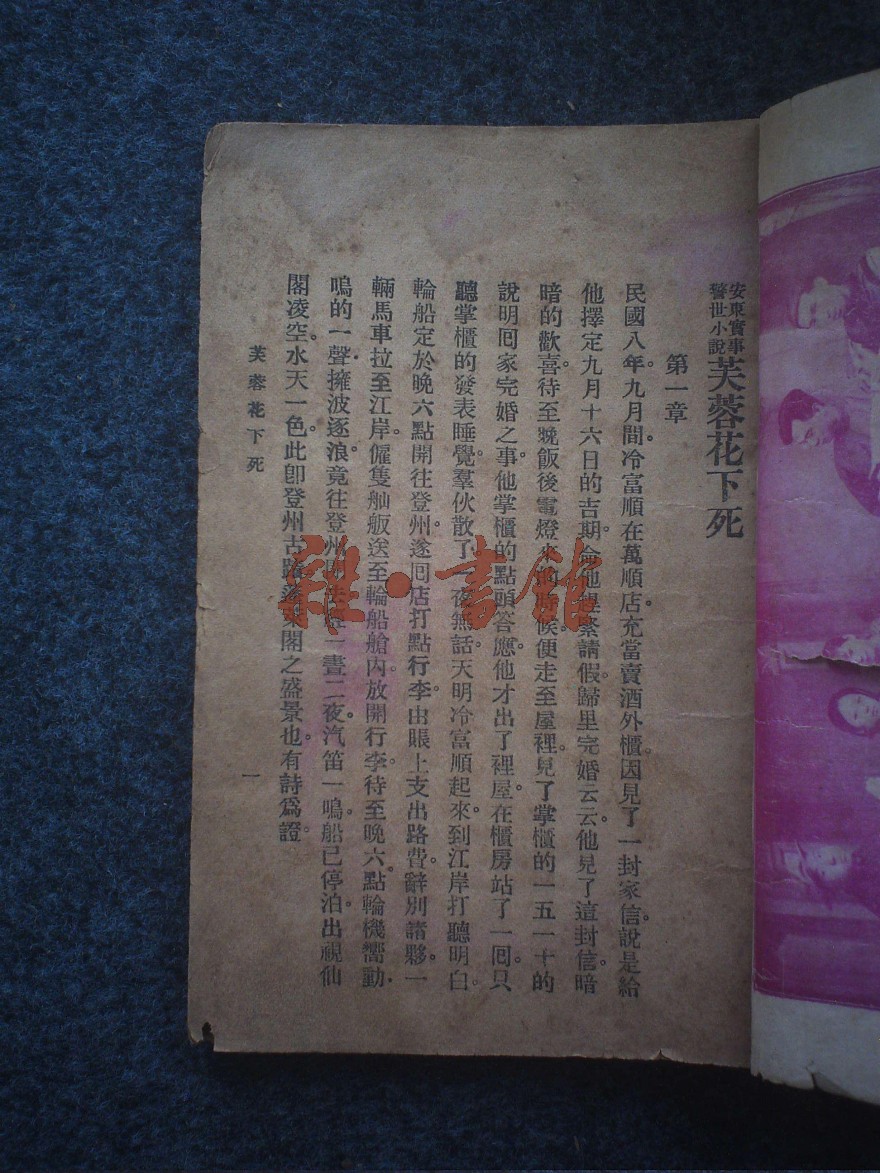 安東實事
警世小說
芙蓉花下死
第一章
民國八年。九月間。冷富順在萬順店充當賣酒外櫃。因見了一封家信。說是給
他擇定九月十六日的吉期。命他趕緊請假。歸里完婚云云。他見了這封信。暗
暗的歡喜。待至晚飯後。電燈來的時候。便走至屋裡。見了掌櫃的一五一十的
說明囘家完婚之事。他掌櫃的點頭答應。他才出了裡屋。在櫃房站了一囘。只
聽掌櫃的發表睡覺。羣伙散了。一夜無話。天明冷富順起來。到江岸打聽明白。
輪船定於晚六點開往登州。遂囘店打點行李。由賬上支出路費。辭別諸夥。一
輛馬車拉至江岸。僱隻舢舨送至輪船艙內。放開行李。待至晚六點。輪機響動。
嗚的一聲。擁波逐浪。竟往登州 一晝二夜。汽笛一鳴。船已停泊。出視仙
閣凌空。水天一色。此卽登州古 閣之盛景也。有詩爲證。
芙蓉花下死
一
雜·書館